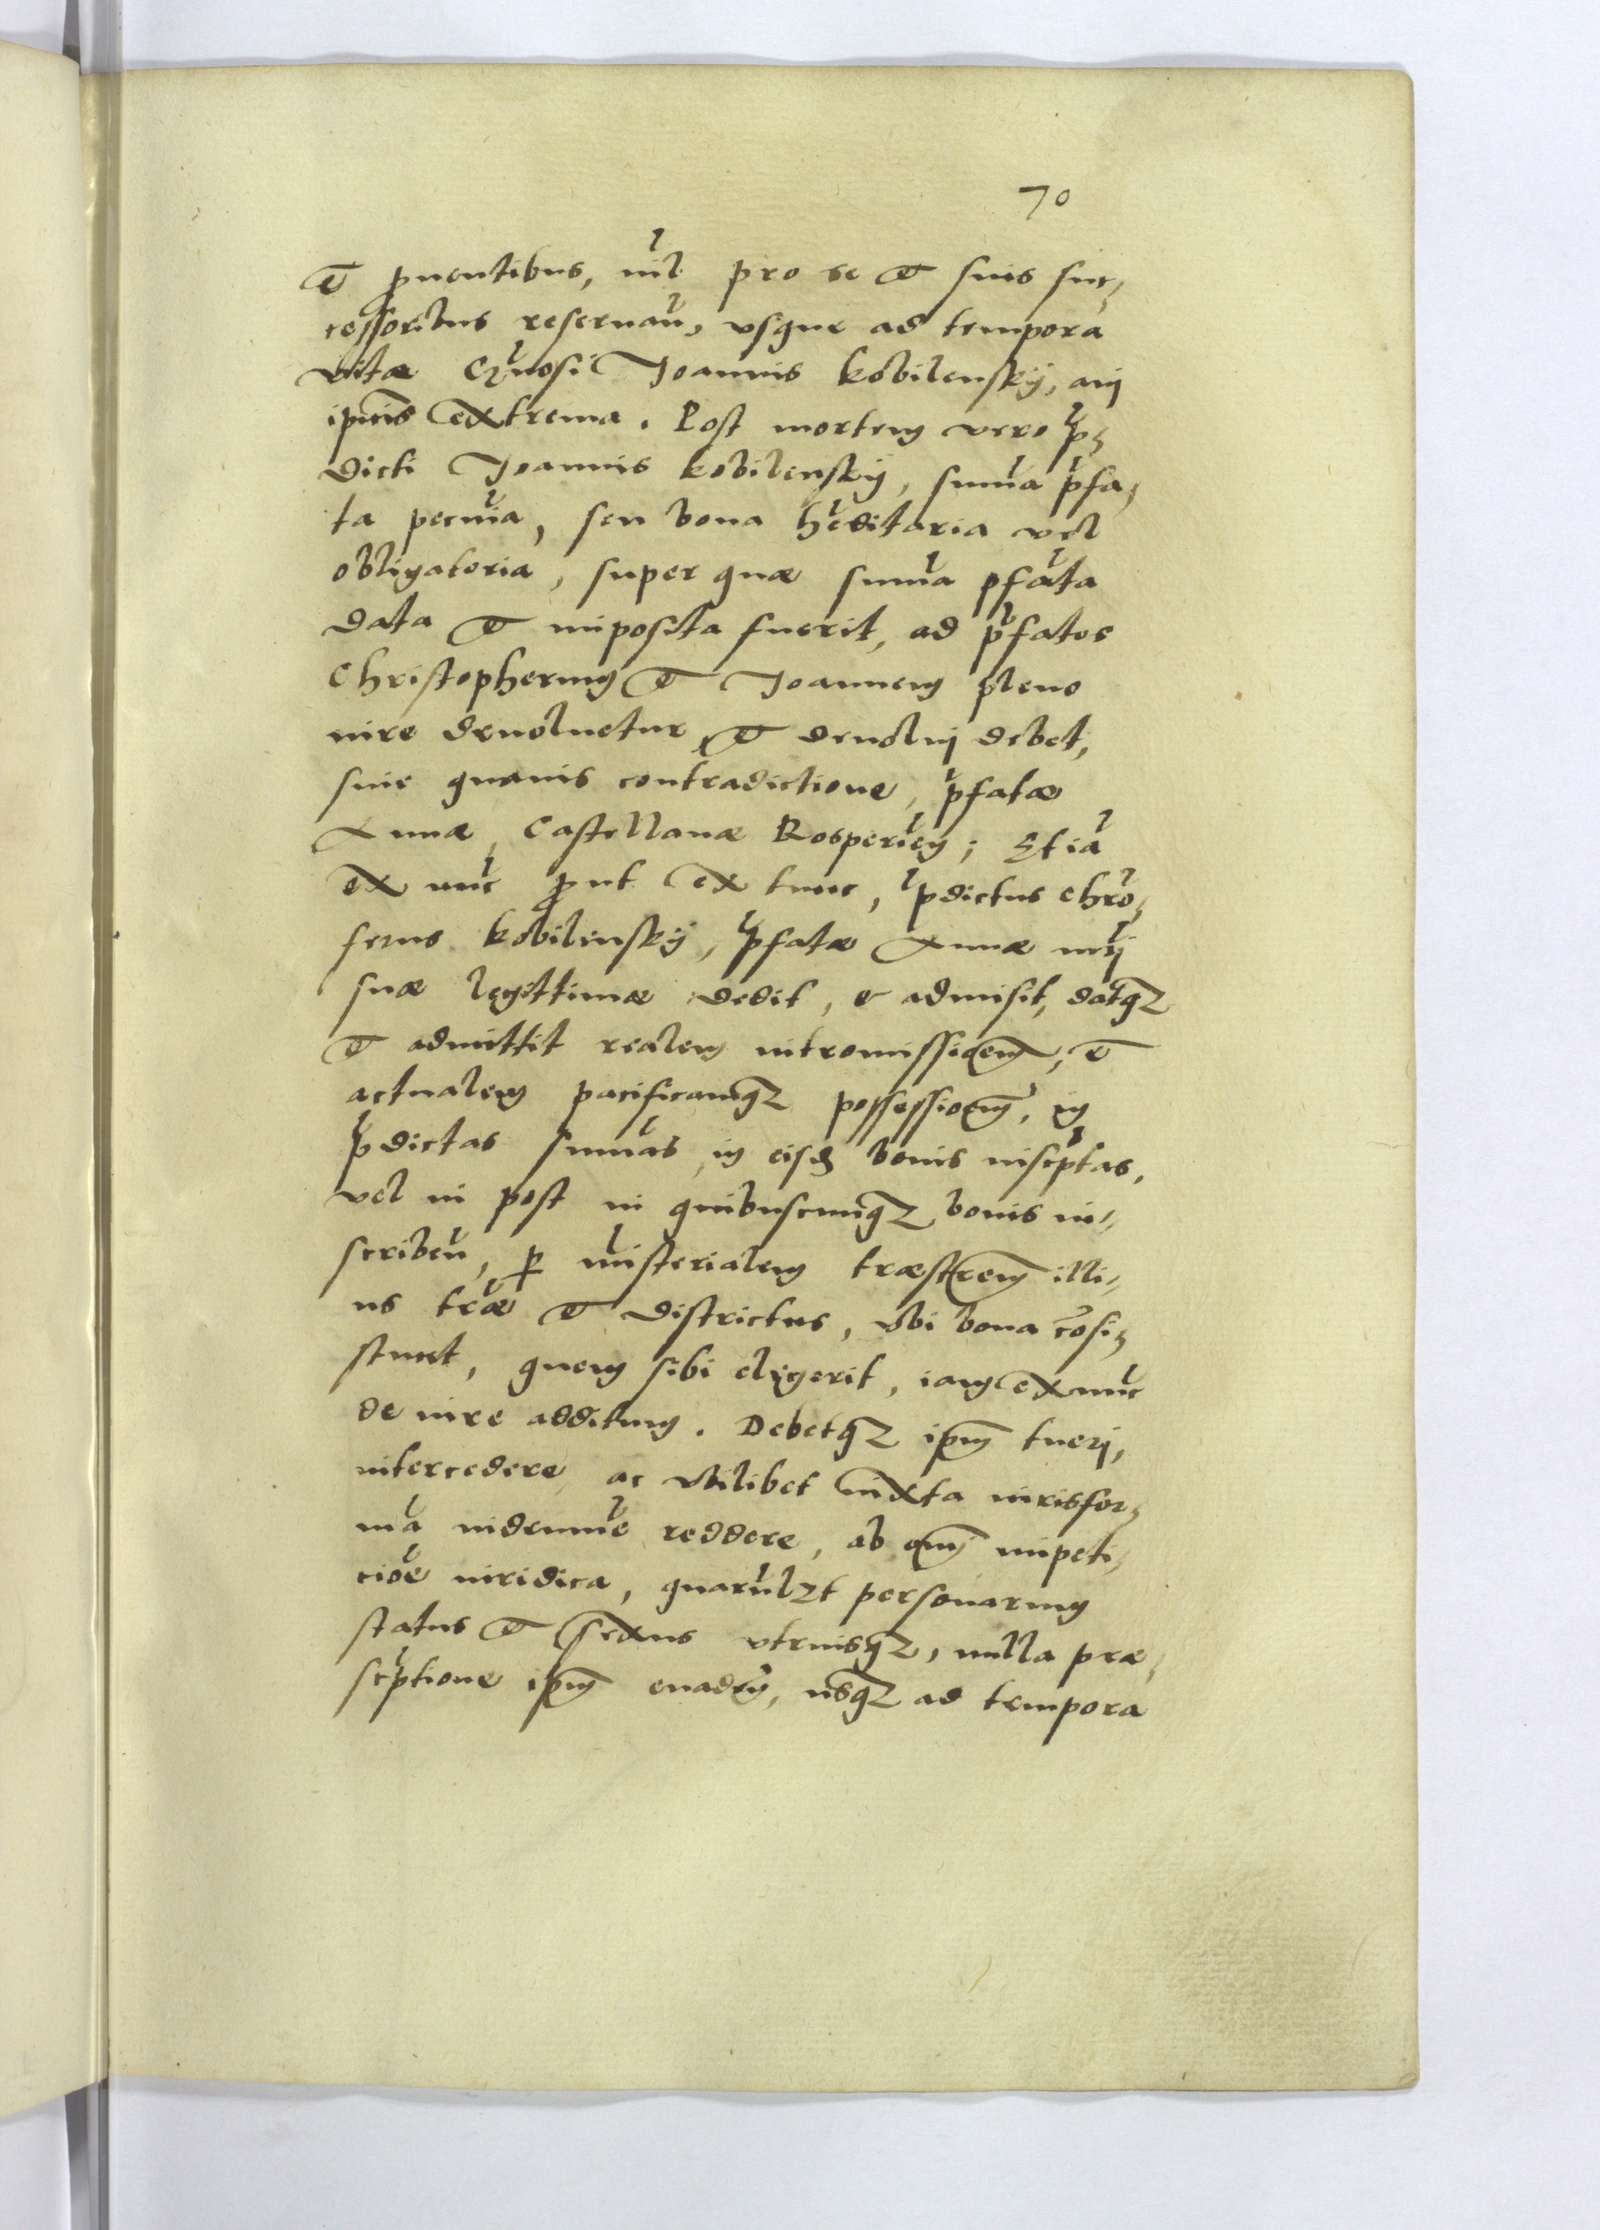 70
et prouentibus, nil pro se et suis suc,
cessoribus reseruan, vsque ad tempora
vitæ Gnosi Joannis Kobilenskÿ, aui
ipius extrema. Post mortem vero p,
dicti Joannis Kobilenskÿ, suma pfa,
ta pecunia, seu bona hreditaria vel
obligatoria, super quæ suma pfata
data et imposita fuerit, ad pfatos
Christopherum et Joannem pleno
iure deuoluetur et deuolui debet,
sine quauis contradictione, pfatæ
Annæ, Castellanæ Rosperien; Etia
ex nuc prout ex tunc, pdictus Chro,
ferus Kobilenskÿ, pfatæ Annæ uxi
suæ legittimæ dedit, et admisit, datq3
et admittit realem intromissionem, et
actualem pacificamq3 possessionem, in
pdictas sumas, in eisd bonis inscptas,
vel in post in quibuscumq3 bonis in-
scriben, per misterialem træstrem illi-
us træ et districtus, vbi bona cosi,
stunt, quem sibi elegerit, iam ex nuc
de iure additum. Debetq3 ipam tueri,
intercedere, ac vbilibet iuxta iurisfor,
ma indemne reddere, ab omni impeti,
cioe iuridica, quarulzt personarum
status et sexus vtriusq3, nulla præ,
scptione ipam euaden, usq3 ad tempora